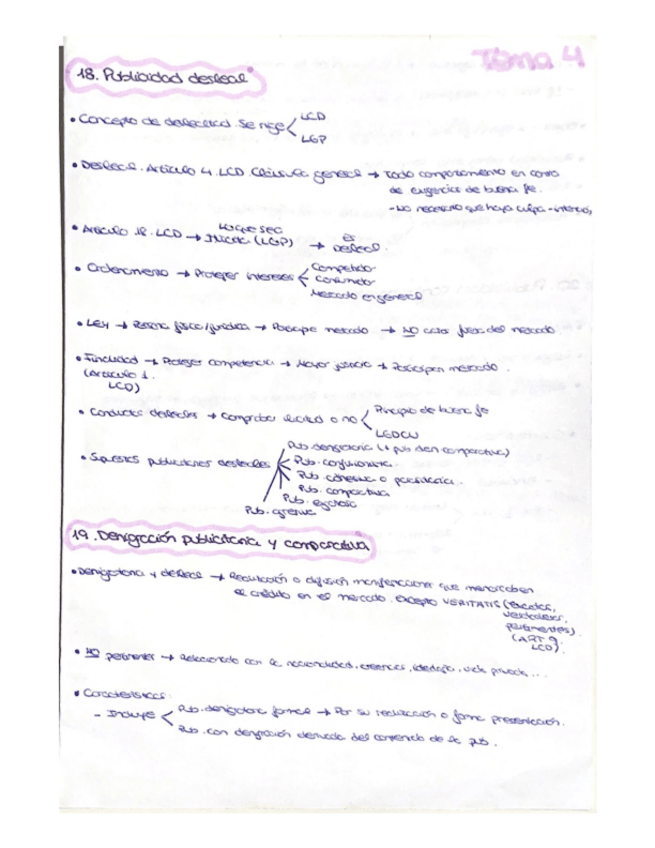 Tema 4
18. Publicidad desleal
• Concepto de deslealtad. Se rige < LCD
LGP
• Desleal. Artículo 4. LCD. Cláusula general → todo comportamiento en contra
de exigencias de buena fe.
- No necesario que haya culpa - intención
• Artículo 18. LCD → Ilícita (LGP) → es desleal.
lo que sea
• Ordenamiento → Proteger intereses < Competidor
Consumidor
Mercado en general
• Ley → Persona física/jurídica → Participe mercado → NO actos fuera del mercado.
• Finalidad → Proteger competencia → Mayor justicia → Participan mercado.
(Artículo 1.
LCD)
• Conductas desleales → Comprobar licitud o no < Principio de buena fe
LGDCU
• Supuestos publicitarios desleales < Pub. denigratoria (+ pub den comparativa)
Pub. confusionista.
Pub. adhesiva o parasitaria.
Pub. comparativa
Pub.
Pub.
19. Denigración publicitaria y comparativa
• Denigratoria y desleal → Realización o difusión manifestaciones que menoscaben
el crédito en el mercado. excepto VERITATIS (exactas,
verdaderas,
pertinentes)
(ART 9.
LCD).
• NO pertinentes → Relacionado con la nacionalidad, creencias, ideología, vida privada...
• Características:
- Incluye < Pub. denigratoria formal → Por su realización o forma presentación.
Pub. con denigración derivada del contenido de la pub.